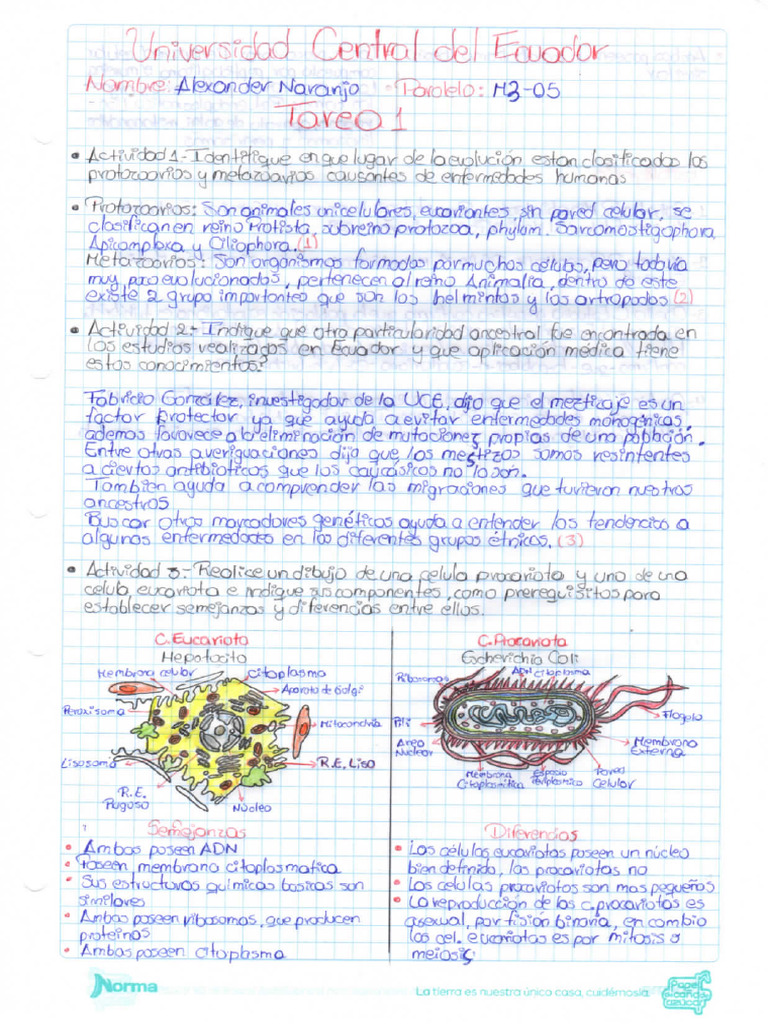 Universidad Central del Ecuador
Nombre: Alexander Naranjo Paralelo: M3-05
Tarea 1
• Actividad 1.- Identifique en que lugar de la evolución estan clasificados los
protozoarios y metazoarios causantes de enfermedades humanas
• Protozoarios: Son animales unicelulares, eucariontes, sin pared celular, se
clasifican en reino Protista, subreino protozoa, phylum. Sarcomastigophora,
Apicomplexa y Ciliophora. (1)
Metazoarios: Son organismos formados por muchas células, pero todavia
muy poco evolucionados, pertenecen al reino Animalia, dentro de este
existe 2 grupo importantes que son los helmintos y los artropodos (2)
• Actividad 2.- Indique que otra particularidad ancestral fue encontrada en
los estudios realizados en Ecuador y que aplicación médica tiene
estos conocimientos?
Fabricio González, investigador de la UCE, dijo que el mezticaje es un
factor Protector ya que ayuda a evitar enfermedades monogénicas,
ademas favorece a la eliminación de mutaciones propias de una población.
Entre otras averiguaciones dija que los mestizos somos resintentes
a ciertos antibioticos que los caucásicos no lo son.
Tambien ayuda a comprender las migraciones que tuvieron nuestros
ancestros
Buscar otros marcadores genéticos ayuda a entender las tendencias a
algunas enfermedades en los diferentes grupos étnicos. (3)
• Actividad 3.- Realice un dibujo de una celula procariota y uno de una
celula eucariota e indique sus componentes, como prerequisitos para
establecer semejanzas y diferencias entre ellas.
C. Eucariota
Hepatocito
Membrana celular
Citoplasma
Aparato de Golgi
Peroxisoma
Mitocondria
Lisosoma
R.E. Liso
R.E.
Rugoso
Núcleo
C. Procariota
Escherichia Coli
Ribosomas
ADN
Citoplasma
Flagelo
Pili
Area
Nuclear
Membrana
Externa
Membrana
Citoplasmática
Espacio
Periplasmico
Pared
Celular
Semejanzas
• Ambas poseen ADN
• Poseen membrana citoplasmatica
• Sus estructuras químicas basicas son
similares
• Ambas poseen ribosomas, que producen
proteinas
• Ambas poseen citoplasma
Diferencias
• Las células eucariotas poseen un núcleo
bien definido, las procariotas no
• Las celulas procariotas son mas pequeñas
• La reproducción de las c. procariotas es
asexual, por fisión binaria, en cambio
las cel. eucariotas es por mitosis o
meiosis
Norma
La tierra es nuestra única casa, cuidémosla.